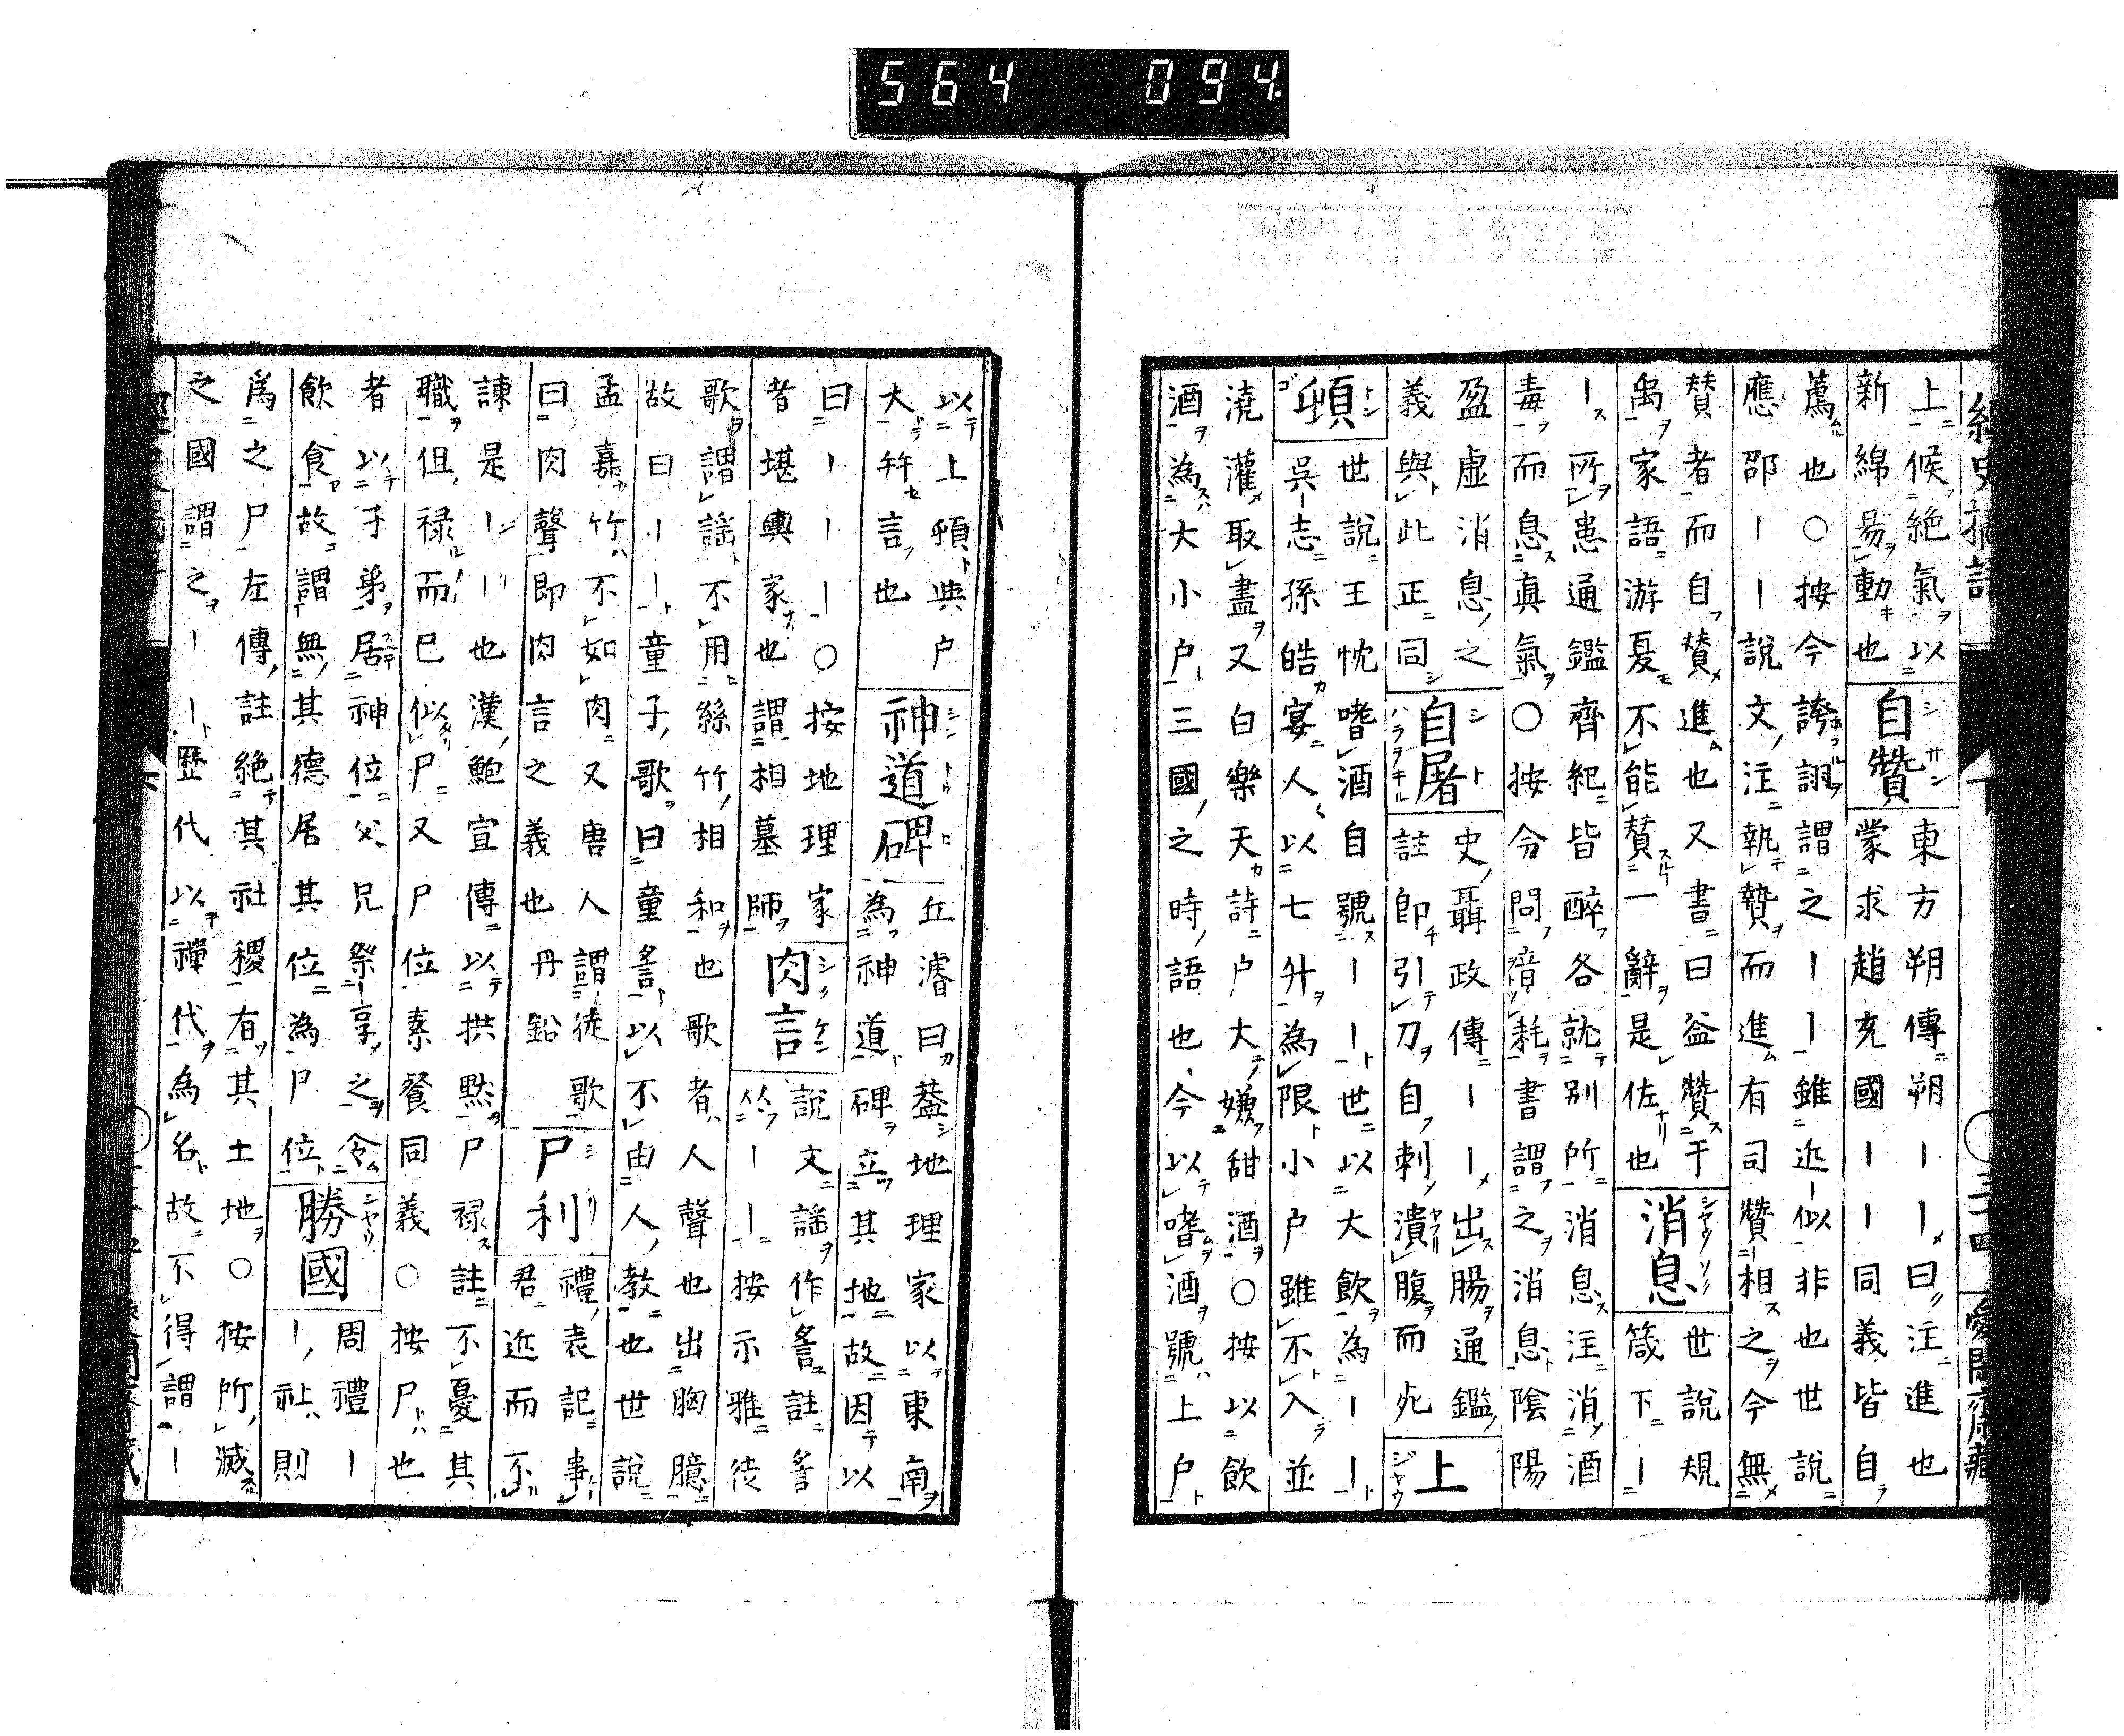 564 094
上候絶氣以
新綿易動也
自贊
東方朔傳朔ーー曰注進也
蒙求趙充國ーー同義皆自
薦也○按今誇詡謂之ーー雖近似非也世說
應邵ーー說文注執贄而進有司贊相之今無
賛者而自賛進也又書曰益贊于
禹家語游夏不能賛一辭是佐也
消息
世說規
箴下ー
ー所患通鑑齊紀皆醉各就别所消息注消酒
毒而息真氣○按今問音耗書謂之消息陰陽
盈虛消息之
義與此正同
自屠
史聶政傳ーー出腸通鑑
註即引刀自刺潰腹而死
上
頓
世說王忱嗜酒自號ーー世以大飲為ーー
吳志孫皓宴人以七升為限小户雖不入並
澆灌取盡又白樂天詩户大嫌甜酒○按以飲
酒為大小户三國之時語也今以嗜酒號上户
以上頓與户
大幷言也
神道碑
丘濬曰葢地理家以東南
為神道碑立其地故因以
曰ーーー○按地理家
者堪輿家也謂相墓師
肉言
說文謡作䚻註䚻
从ーー按示雅徒
歌謂謡不用絲竹相和也歌者人聲也出胸臆
故曰ーー童子歌曰童䚻以不由人教也世說
孟嘉竹不如肉又唐人謂徒歌
曰肉聲即肉言之義也丹鉛
尸利
禮表記事
君近而不
諫是ーー也漢鮑宣傳以拱黙尸禄註不憂其
職但禄而已似尸又尸位素餐同義○按尸也
者以子弟居神位父兄祭享之令
飲食故謂無其德居其位為尸位
勝國
周禮ー
ー社則
爲之尸左傳註絶其社稷有其土地○按所滅
之國謂之ーー歷代以禪代為名故不得謂ー